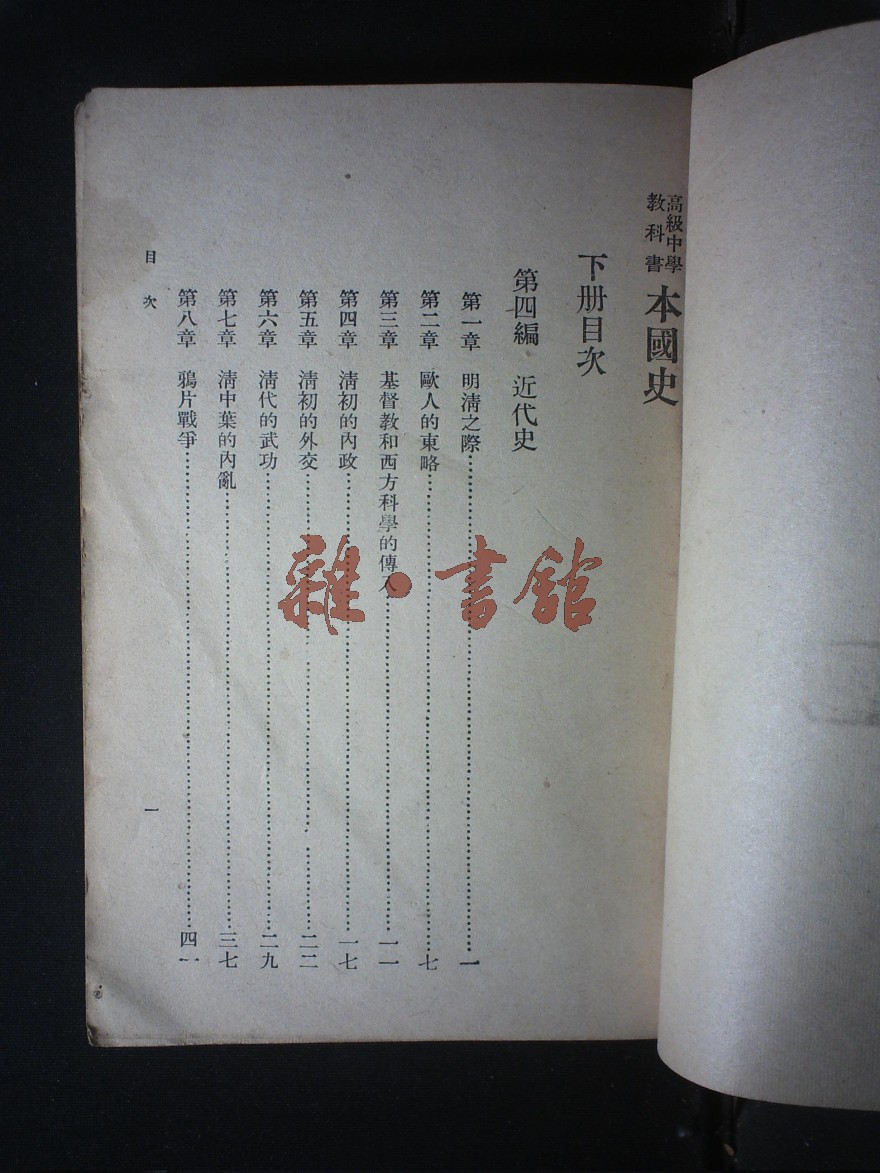 高級中學
教科書
本國史
下册目次
第四編 近代史
第一章 明清之際……一
第二章 歐人的東略……七
第三章 基督教和西方科學的傳入……一一
第四章 清初的內政……一七
第五章 清初的外交……二二
第六章 清代的武功……二九
第七章 清中葉的內亂……三七
第八章 鴉片戰爭……四一
目次 一
雜·書館